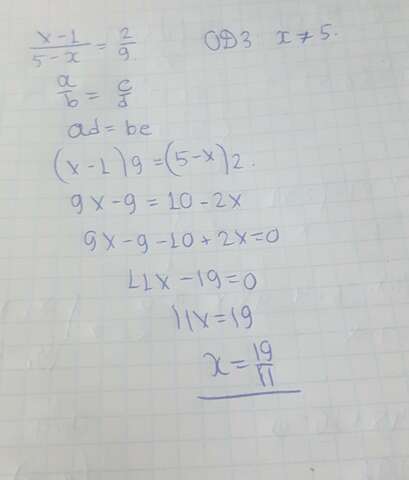 x-1/5-x = 2/9. ОДЗ x≠5.
a/b = c/d
ad = bc
(x-1)9=(5-x)2.
9x-9=10-2x
9x-9-10+2x=0
11x-19=0
11x=19
x=19/11